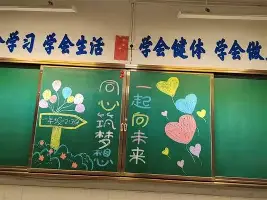 学习 学会生活 学会健体 学会做
同心筑梦想
一起向未来